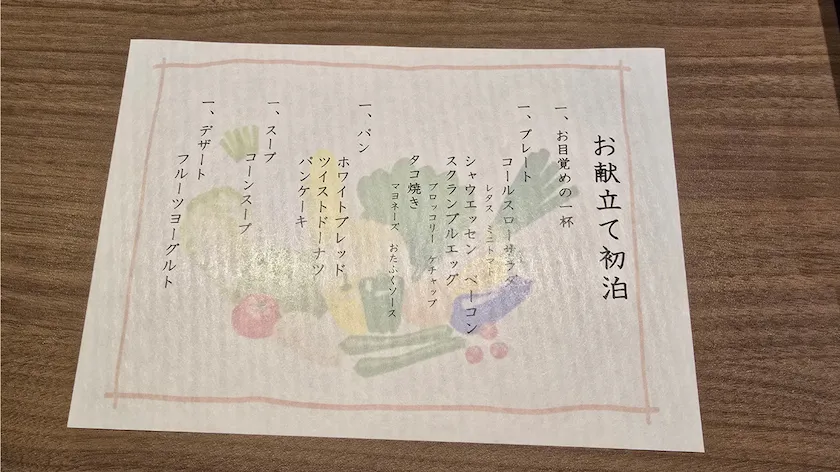 お献立て初泊
一、お目覚めの一杯
一、プレート
コールスローサラダ
レタス ミニトマト
シャウエッセン ベーコン
スクランブルエッグ
ブロッコリー ケチャップ
タコ焼き
マヨネーズ おたふくソース
一、パン
ホワイトブレッド
ツイストドーナツ
パンケーキ
一、スープ
コーンスープ
一、デザート
フルーツヨーグルト